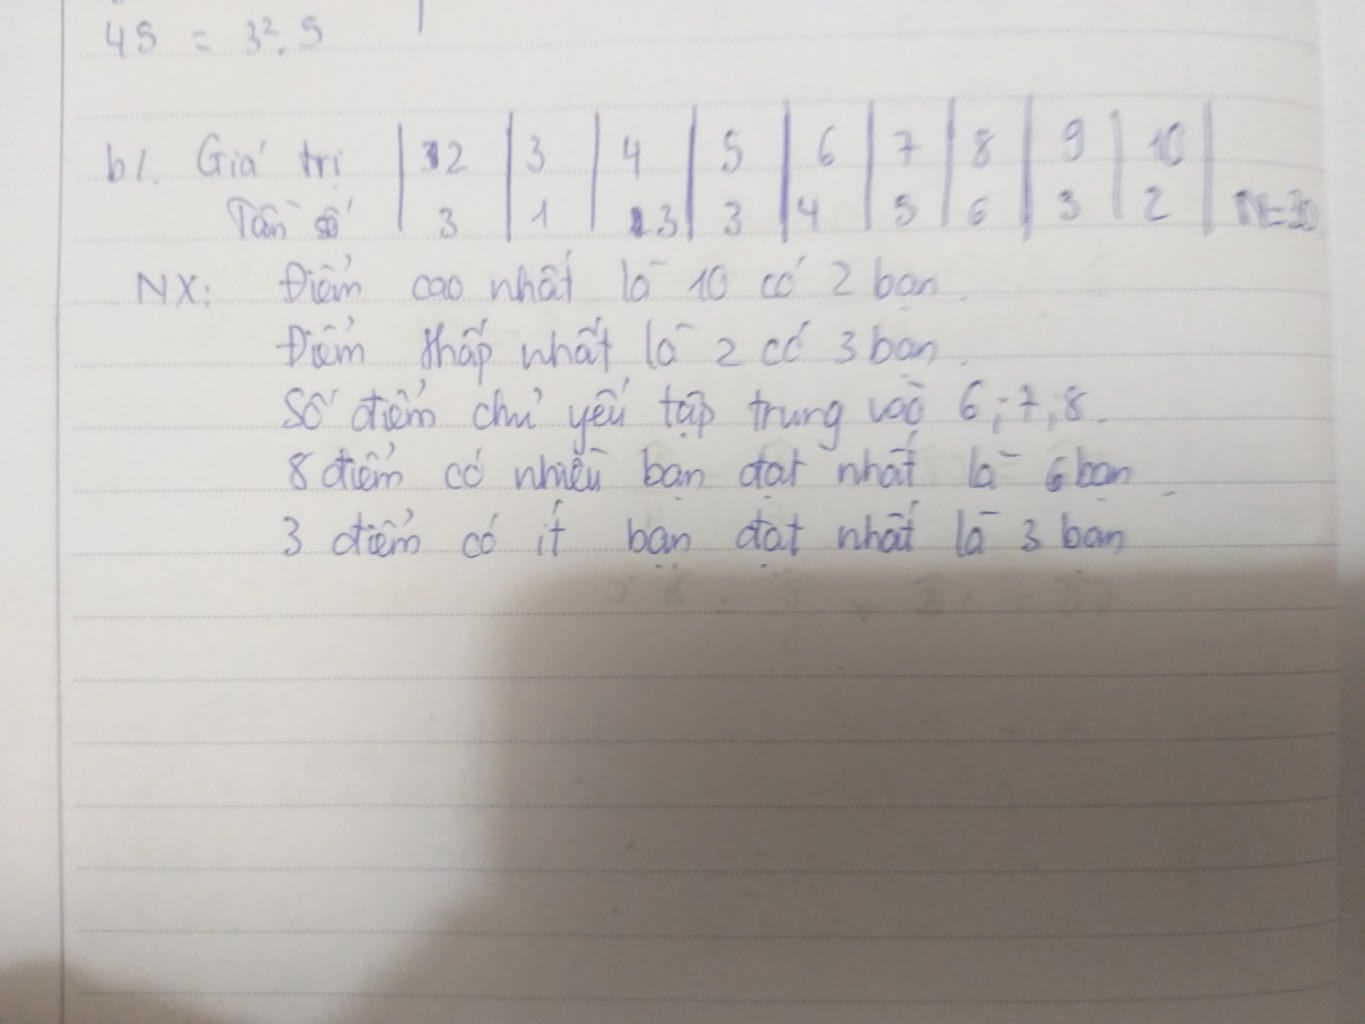 45 = 3². 5
b/. Giá trị | 2 | 3 | 4 | 5 | 6 | 7 | 8 | 9 | 10 |
Tần số | 3 | 1 | 3 | 3 | 4 | 5 | 6 | 3 | 2 | N=30
NX: Điểm cao nhất là 10 có 2 bạn.
Điểm thấp nhất là 2 có 3 bạn.
Số điểm chủ yếu tập trung vào 6; 7, 8.
8 điểm có nhiều bạn đạt nhất là 6 bạn.
3 điểm có ít bạn đạt nhất là 3 bạn